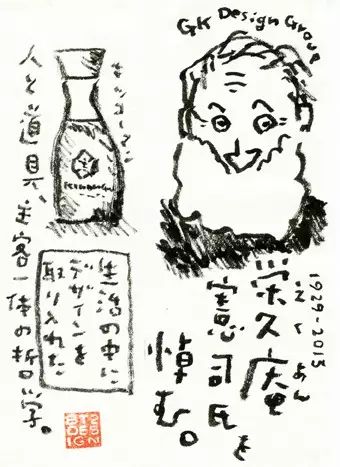 GK Design Group
1929-2015
栄久庵
憲司氏を
悼む。
キッコーマン
生活の中に
デザインを
取り入れた
人と道具、主客一体の哲学。